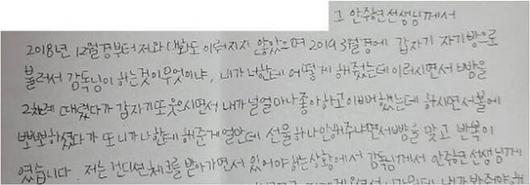 그 안주현선생님께서
2018년 12월경부터 저와 대화도 이루어지지 않았으며 2019 3월경에 갑자기 자기방으로
불러서 감독님이 하는것이 무엇이냐, 내가 너한테 어떻게 해줬는데 이러시면서 뺨을
2차례 때렸다가 갑자기 또 웃으시면서 내가 널 얼마나 좋아하고 이뻐했는데 하시면서 볼에
뽀뽀하셨다가 또 니가 나한테 해준게 열만데 선물하나 안해주냐면서 뺨을 맞고 반복이
였습니다. 저는 컨디션체크를 받아가면서 있어야하는상황에서 감독님께서 안주현선생님께
내가 봐줘야해